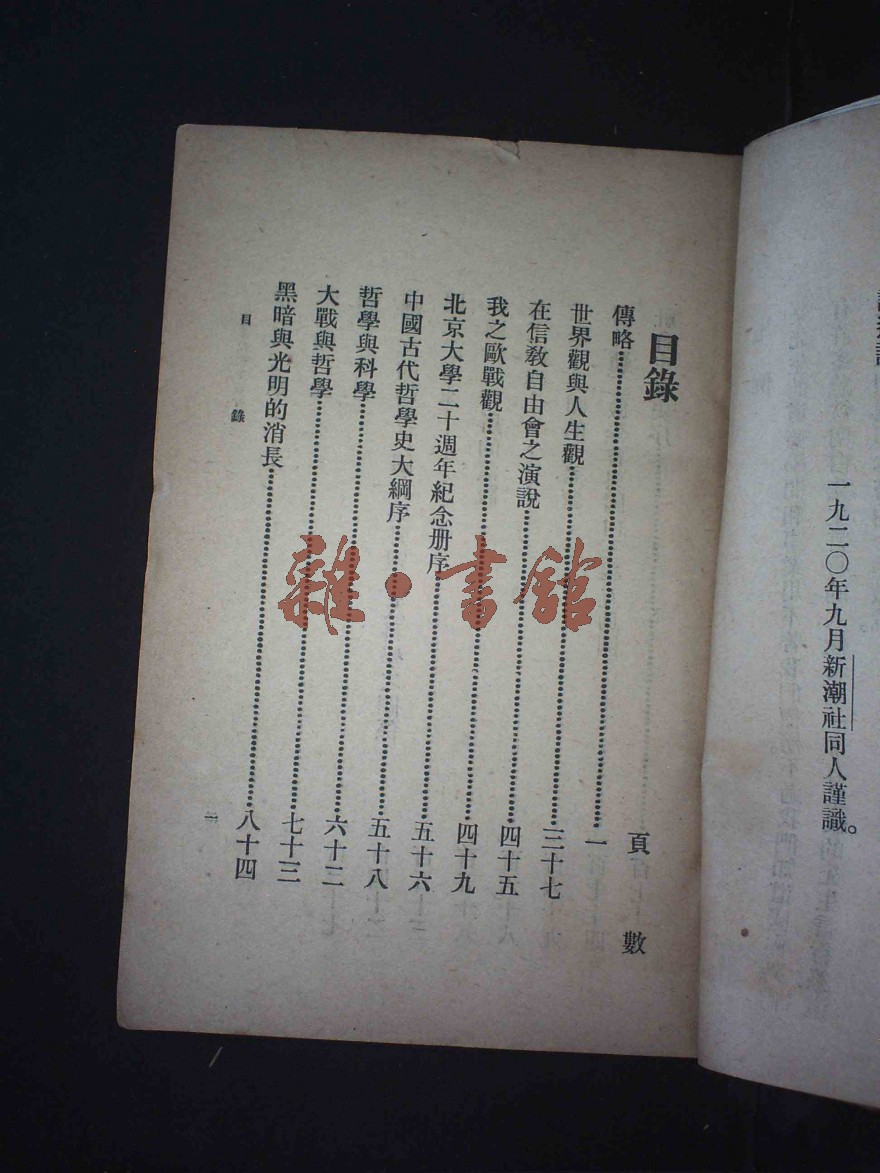 一九二〇年九月新潮社同人謹識。
目錄
頁數
傳略……一
世界觀與人生觀……三十七
在信教自由會之演說……四十五
我之歐戰觀……四十九
北京大學二十週年紀念册序……五十六
中國古代哲學史大綱序……五十八
哲學與科學……六十二
大戰與哲學……七十三
黑暗與光明的消長……八十四
目錄
一
雜·書館